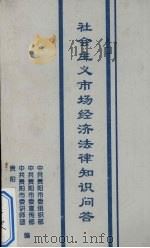 社会主义市场经济法律知识问答
中共贵阳市委组织部
中共贵阳市委宣传部
中共贵阳市委讲师团
贵阳
编